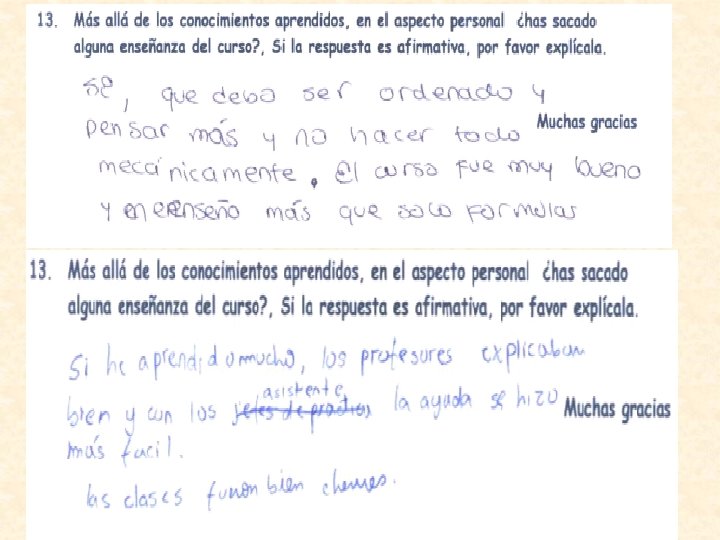 13. Más allá de los conocimientos aprendidos, en el aspecto personal ¿has sacado
alguna enseñanza del curso?, Si la respuesta es afirmativa, por favor explícala.
sí, que debo ser ordenado y
pensar más y no hacer todo
Muchas gracias
mecánicamente. El curso fue muy bueno
y enseño más que solo formulas
13. Más allá de los conocimientos aprendidos, en el aspecto personal ¿has sacado
alguna enseñanza del curso?, Si la respuesta es afirmativa, por favor explícala.
Si he aprendido mucho, los profesores explicaban
asistente
bien y con los jefes de practicas la ayuda se hizo
Muchas gracias
más facil.
las clases bien chevres.